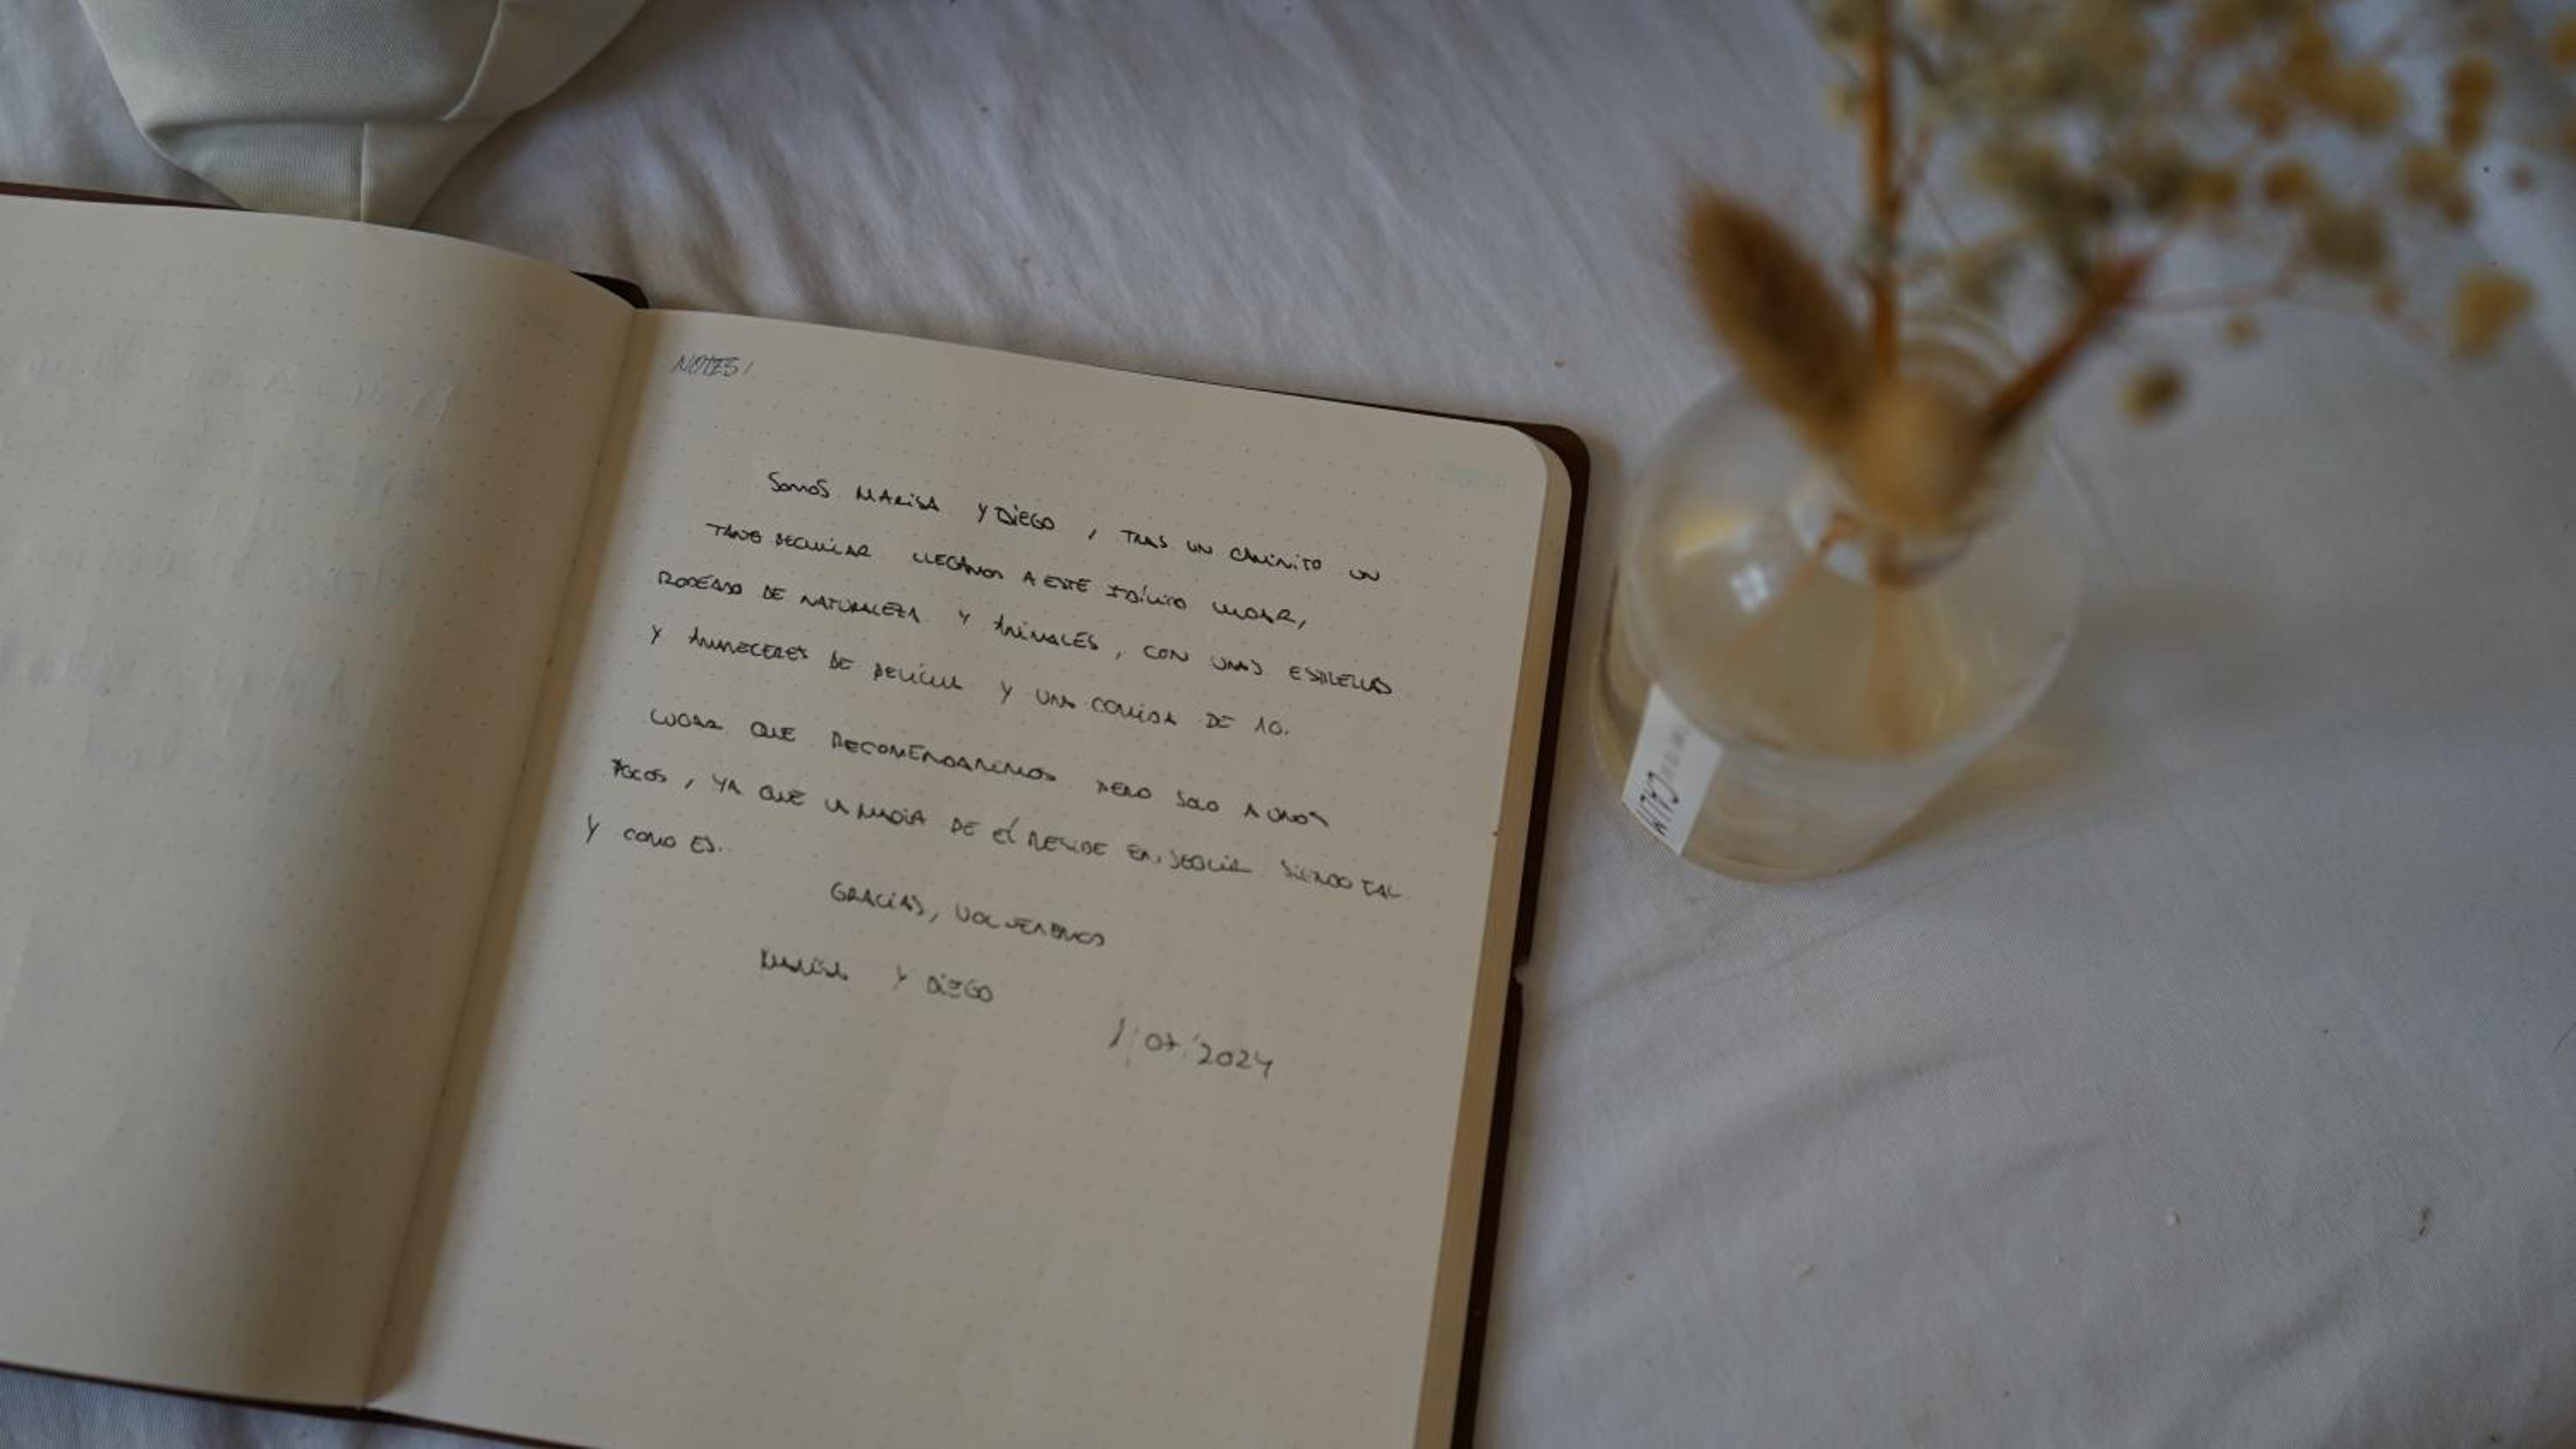 NOTES!
SOMOS MARISA Y DIEGO, TRAS UN CAMINITO UN
TANTO PECULIAR LLEGAMOS A ESTE IDÍLICO LUGAR,
RODEADO DE NATURALEZA Y ANIMALES, CON UNAS ESTRELLAS
Y AMANECERES DE PELÍCULA Y UNA COMIDA DE 10.
LUGAR QUE RECOMENDAREMOS PERO SOLO A UNOS
POCOS, YA QUE LA MAGIA DE ÉL RESIDE EN, SEGUIR SIENDO TAL
Y COMO ES.
GRACIAS, VOLVEREMOS
MARISA Y DIEGO
1/07/2024
CALM